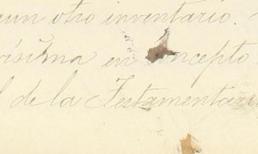 aun otro inventario.
en concepto
de la Testamentari